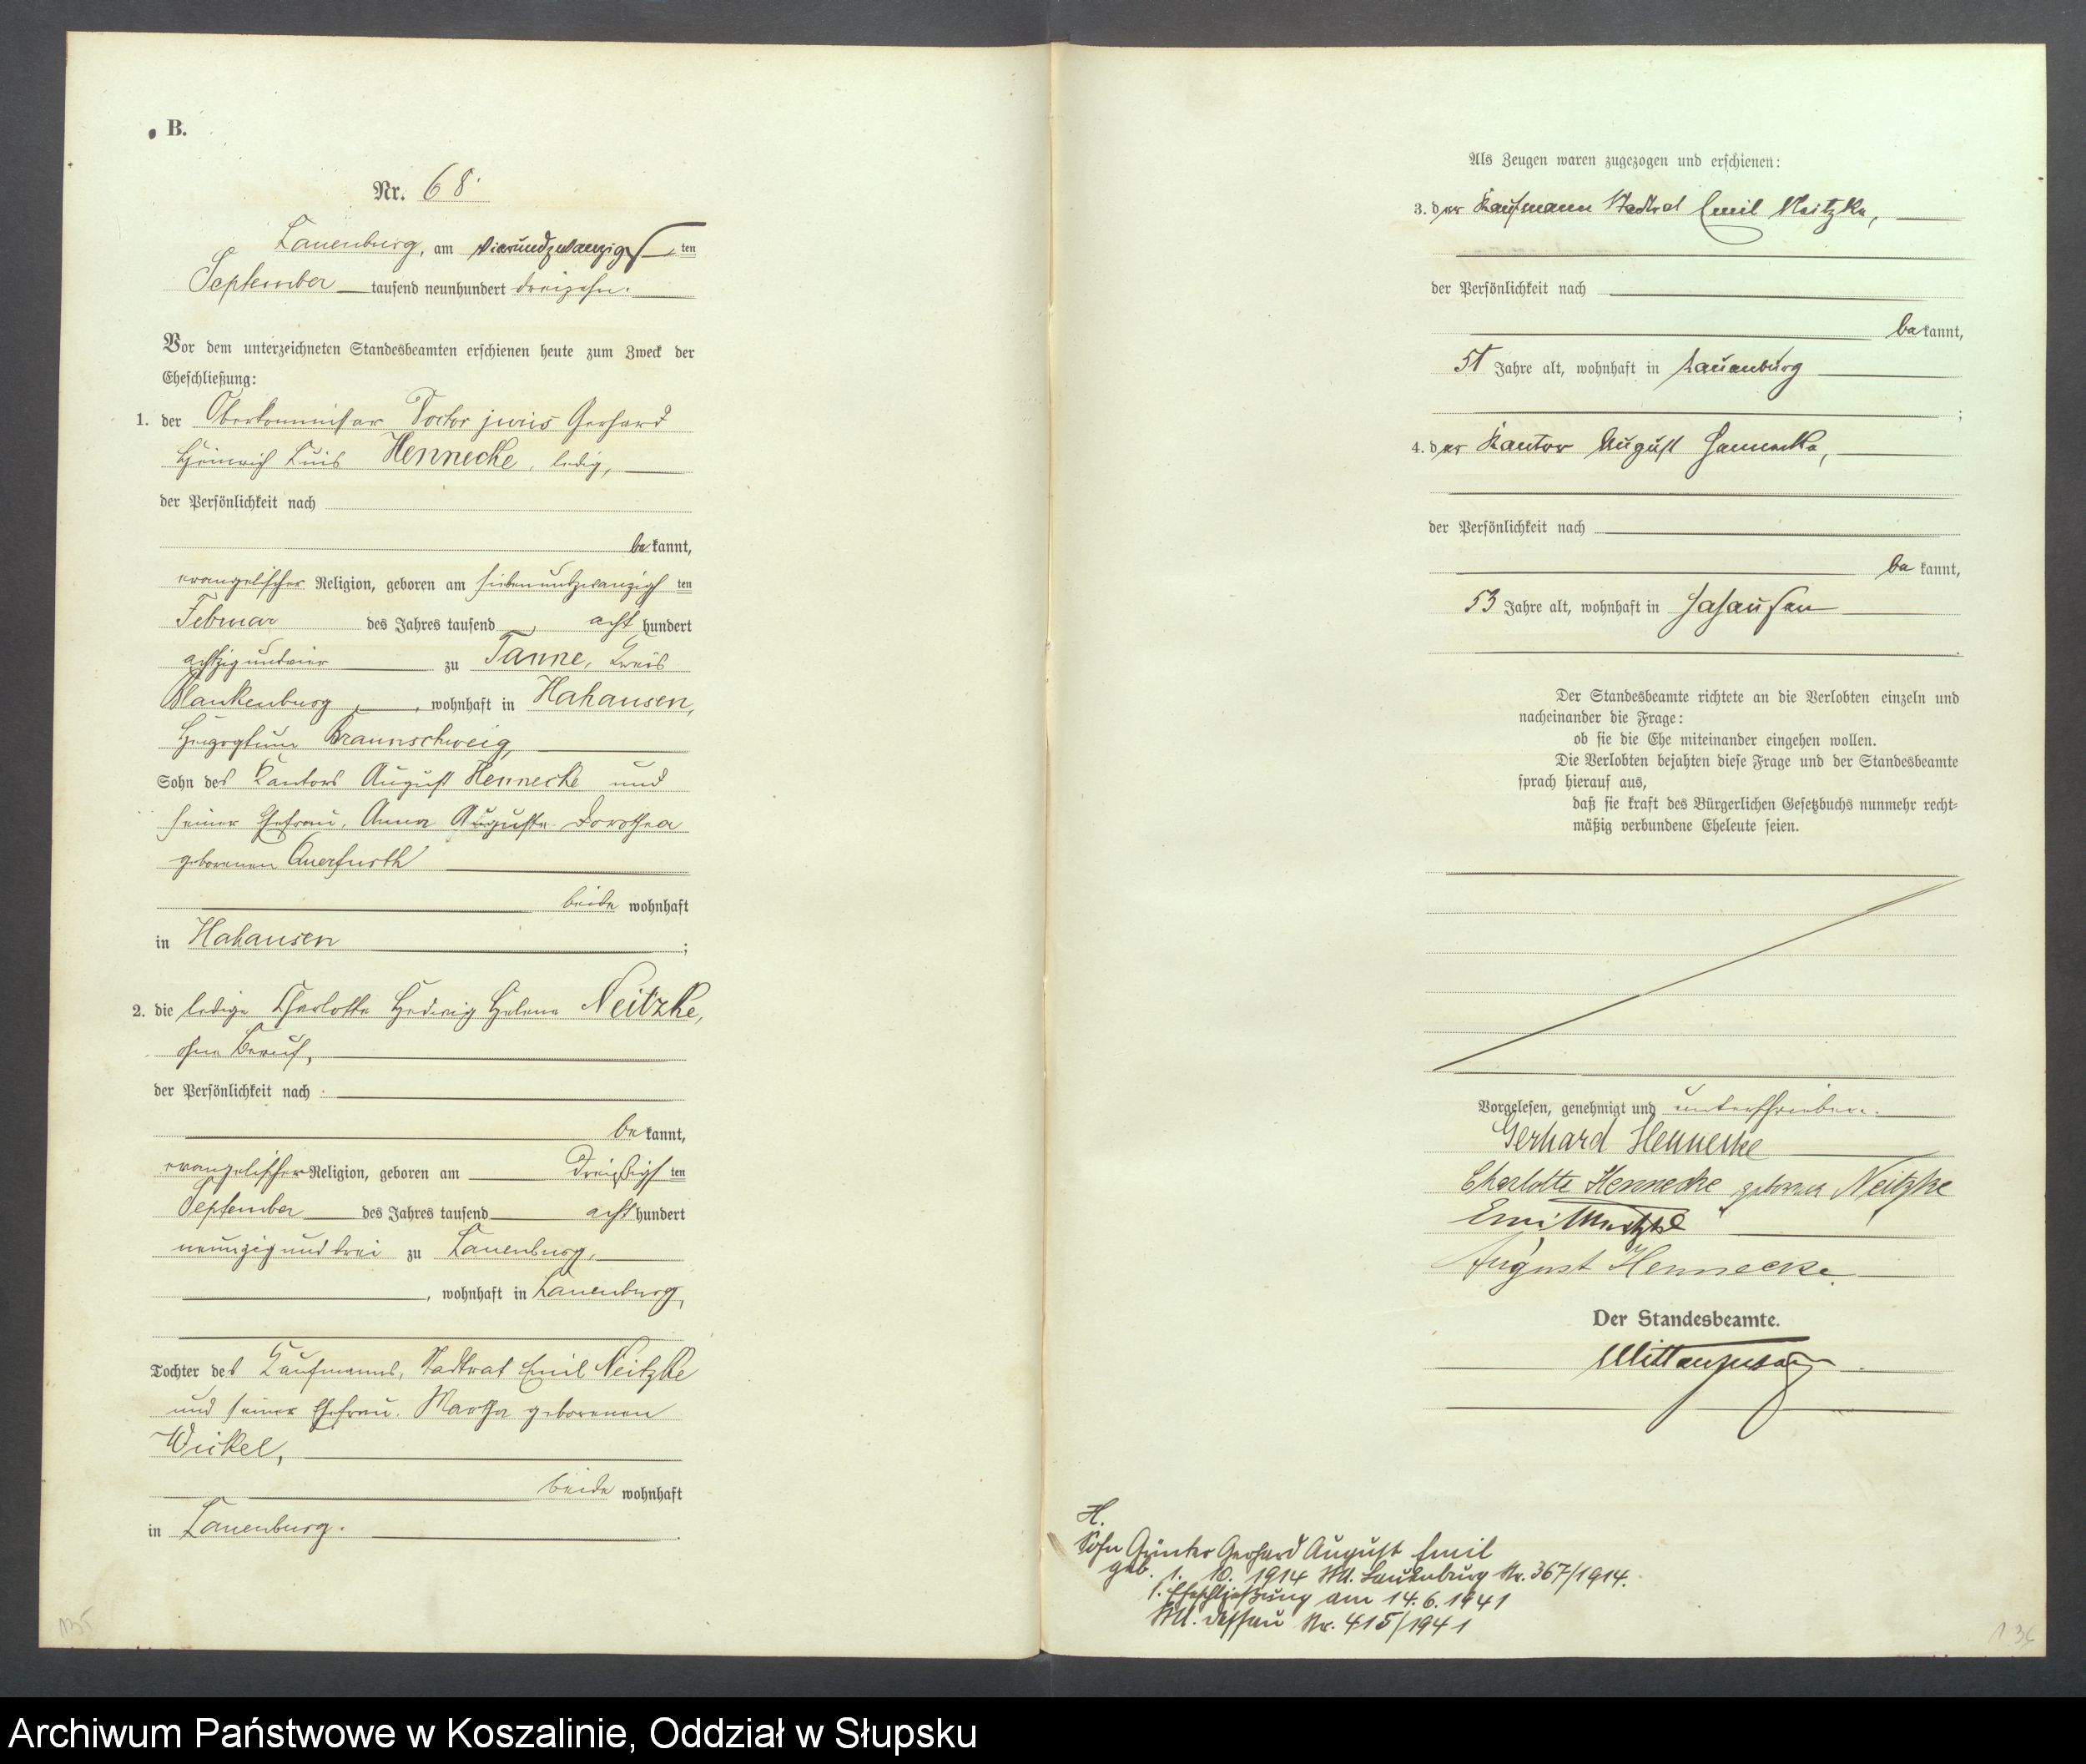 B.
Nr. 68.
Lauenburg, am vierundzwanzigsten
September tausend neunhundert dreizehn.
Vor dem unterzeichneten Standesbeamten erschienen heute zum Zweck der
Eheschließung:
1. der Doctor juris Gerhard
Heinrich Luis Hennecke, ledig,
der Persönlichkeit nach
bekannt,
evangelischer Religion, geboren am siebenundzwanzigsten
Februar des Jahres tausend acht hundert
achtzig und vier zu Tanne, Kreis
Blankenburg, wohnhaft in Hahausen,
Herzogtum Braunschweig,
Sohn des Kantors August Hennecke und
seiner Ehefrau, Anna Auguste Dorothea
geborenen Querfurth
beide wohnhaft
in Hahausen ;
2. die ledige Charlotte Hedwig Helene Neitzke,
ohne Beruf,
der Persönlichkeit nach
bekannt,
evangelischer Religion, geboren am dreißigsten
September des Jahres tausend acht hundert
neunzig und drei zu Lauenburg,
, wohnhaft in Lauenburg,
Tochter des Kaufmanns, Stadtrat Emil Neitzke
und seiner Ehefrau, Martha geborenen
beide wohnhaft
in Lauenburg.
135
Als Zeugen waren zugezogen und erschienen:
3. der Kaufmann Stadtrat Emil Neitzke,
der Persönlichkeit nach
bekannt,
51 Jahre alt, wohnhaft in Lauenburg
;
4. der Kantor August Hennecke,
der Persönlichkeit nach
bekannt,
53 Jahre alt, wohnhaft in Hahausen
.
Der Standesbeamte richtete an die Verlobten einzeln und
nacheinander die Frage:
ob sie die Ehe miteinander eingehen wollen.
Die Verlobten bejahten diese Frage und der Standesbeamte
sprach hierauf aus,
daß sie kraft des Bürgerlichen Gesetzbuchs nunmehr recht-
mäßig verbundene Eheleute seien.
Vorgelesen, genehmigt und unterschrieben.
Gerhard Hennecke
Charlotte Hennecke geborene Neitzke
Emil Neitzke
August Hennecke.
Der Standesbeamte.
H.
Sohn Günter Gerhard August Emil
geb. 1. 10. 1914 StA. Lauenburg Nr. 367/1914.
1. Eheschließung am 14.6.1941
StA. Dessau Nr. 415/1941
136
Archiwum Państwowe w Koszalinie, Oddział w Słupsku